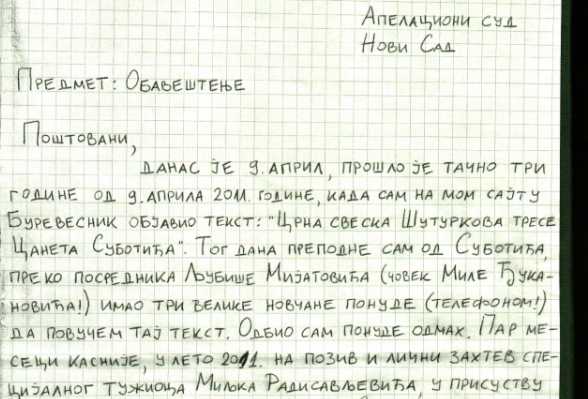 Апелациони суд
Нови Сад
Предмет: Обавештење
Поштовани,
Данас је 9. април, прошло је тачно три
године од 9. априла 2011. године, када сам на мом сајту
Буревесник објавио текст: "Црна свеска Шутуркова тресе
Цанета Суботића". Тог дана преподне сам од Суботића,
преко посредника Љубише Мијатовића (човек Миле Ђука-
новића!) имао три велике новчане понуде (телефоном!)
да повучем тај текст. Одбио сам понуде одмах. Пар ме-
сеци касније, у лето 2011. на позив и лични захтев спе-
цијалног тужиоца Миљка Радисављевића, у присуству